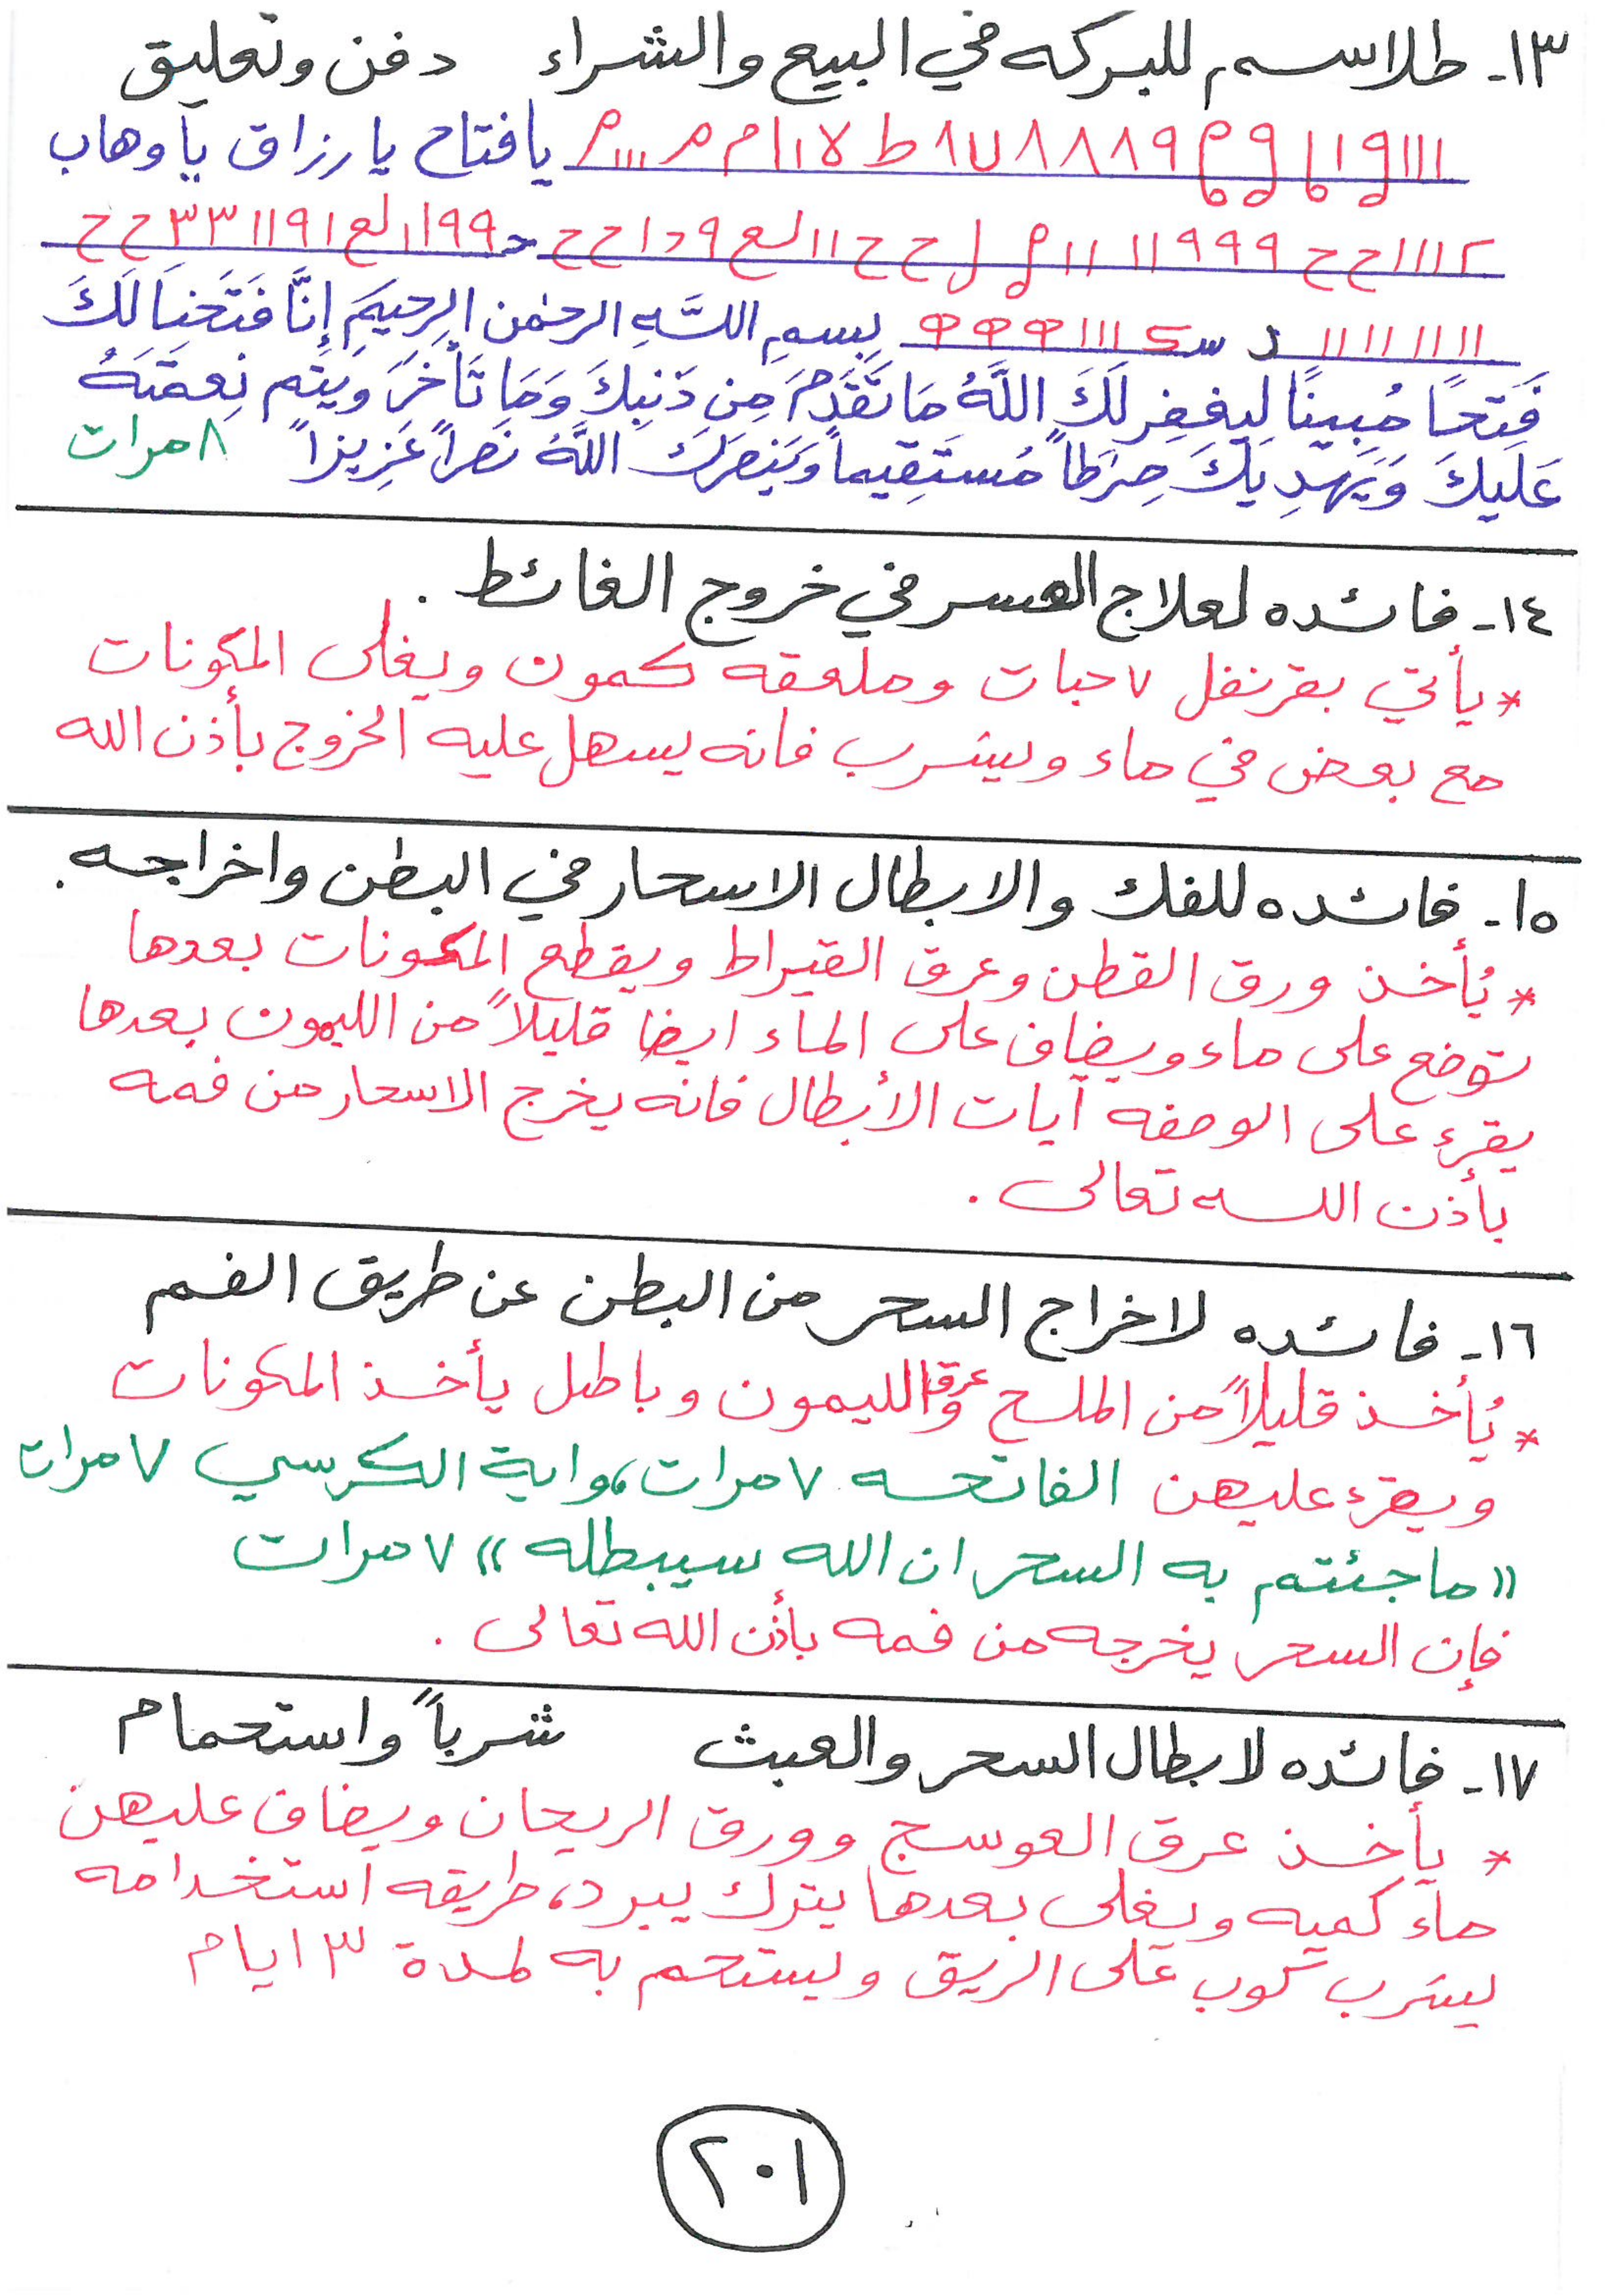 ١٣- طلاسم للبركه في البيع والشراء دفن وتعليق
يا فتاح يا رزاق يا وهاب
بِسمِ اللَّهِ الرحمٰن الرحيمَ إِنَّا فَتَحَنَا لَكَ
فَتَحًا مُبِينًا لِيَغفِر لَكَ اللَّهُ مَا تَقَدَّمَ مِن ذَنبِكَ وَمَا تَأَخَرَ وَيُتِم نِعمَتَهُ
عَلَيكَ وَيَهدِيَكَ صِرَطاً مُستَقِيماً وَيَنصَرَكَ اللَّهُ نَصراً عَزِيزاً ٨ مرات
١٤- فائده لعلاج العسر في خروج الغائط .
* يأتي بقرنفل ٧ حبات وملعقه كمون ويغلى المكونات
مع بعض في ماء ويشرب فانه يسهل عليه الخروج بأذن الله
١٥- فائده للفك والابطال الاسحار في البطن واخراجه.
* يُأخذ ورق القطن وعرق القيراط ويقطع المكونات بعدها
توضع على ماء ويضاف على الماء ايضا قليلاً من الليمون بعدها
يقرء على الوصفه آيات الأبطال فانه يخرج الاسحار من فمه
بأذن الله تعالى .
١٦- فائده لاخراج السحر من البطن عن طريق الفم
* يُأخذ قليلاً من الملح وعرق الليمون وباطل يأخذ المكونات
ويقرء عليهن الفاتحه ٧ مرات، واية الكرسي ٧ مرات
«ما جئتم به السحر ان الله سيبطله» ٧ مرات
فإن السحر يخرجه من فمه بأذن الله تعالى .
١٧- فائده لابطال السحر والعبث شرباً واستحمام
* يأخذ عرق العوسج وورق الريحان ويضاف عليهن
ماء كميه ويغلى بعدها يترك يبرد، طريقه استخدامه
يشرب كوب على الريق ويستحم به لمدة ٣ ايام
٢٠١